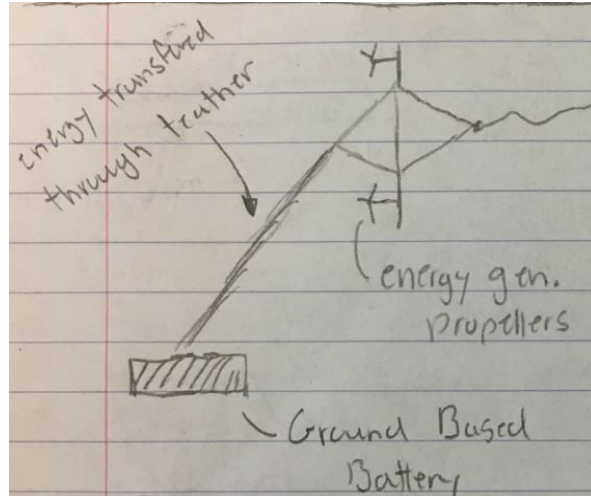 energy transfered
through teather
energy gen.
propellers
Ground Based
Battery